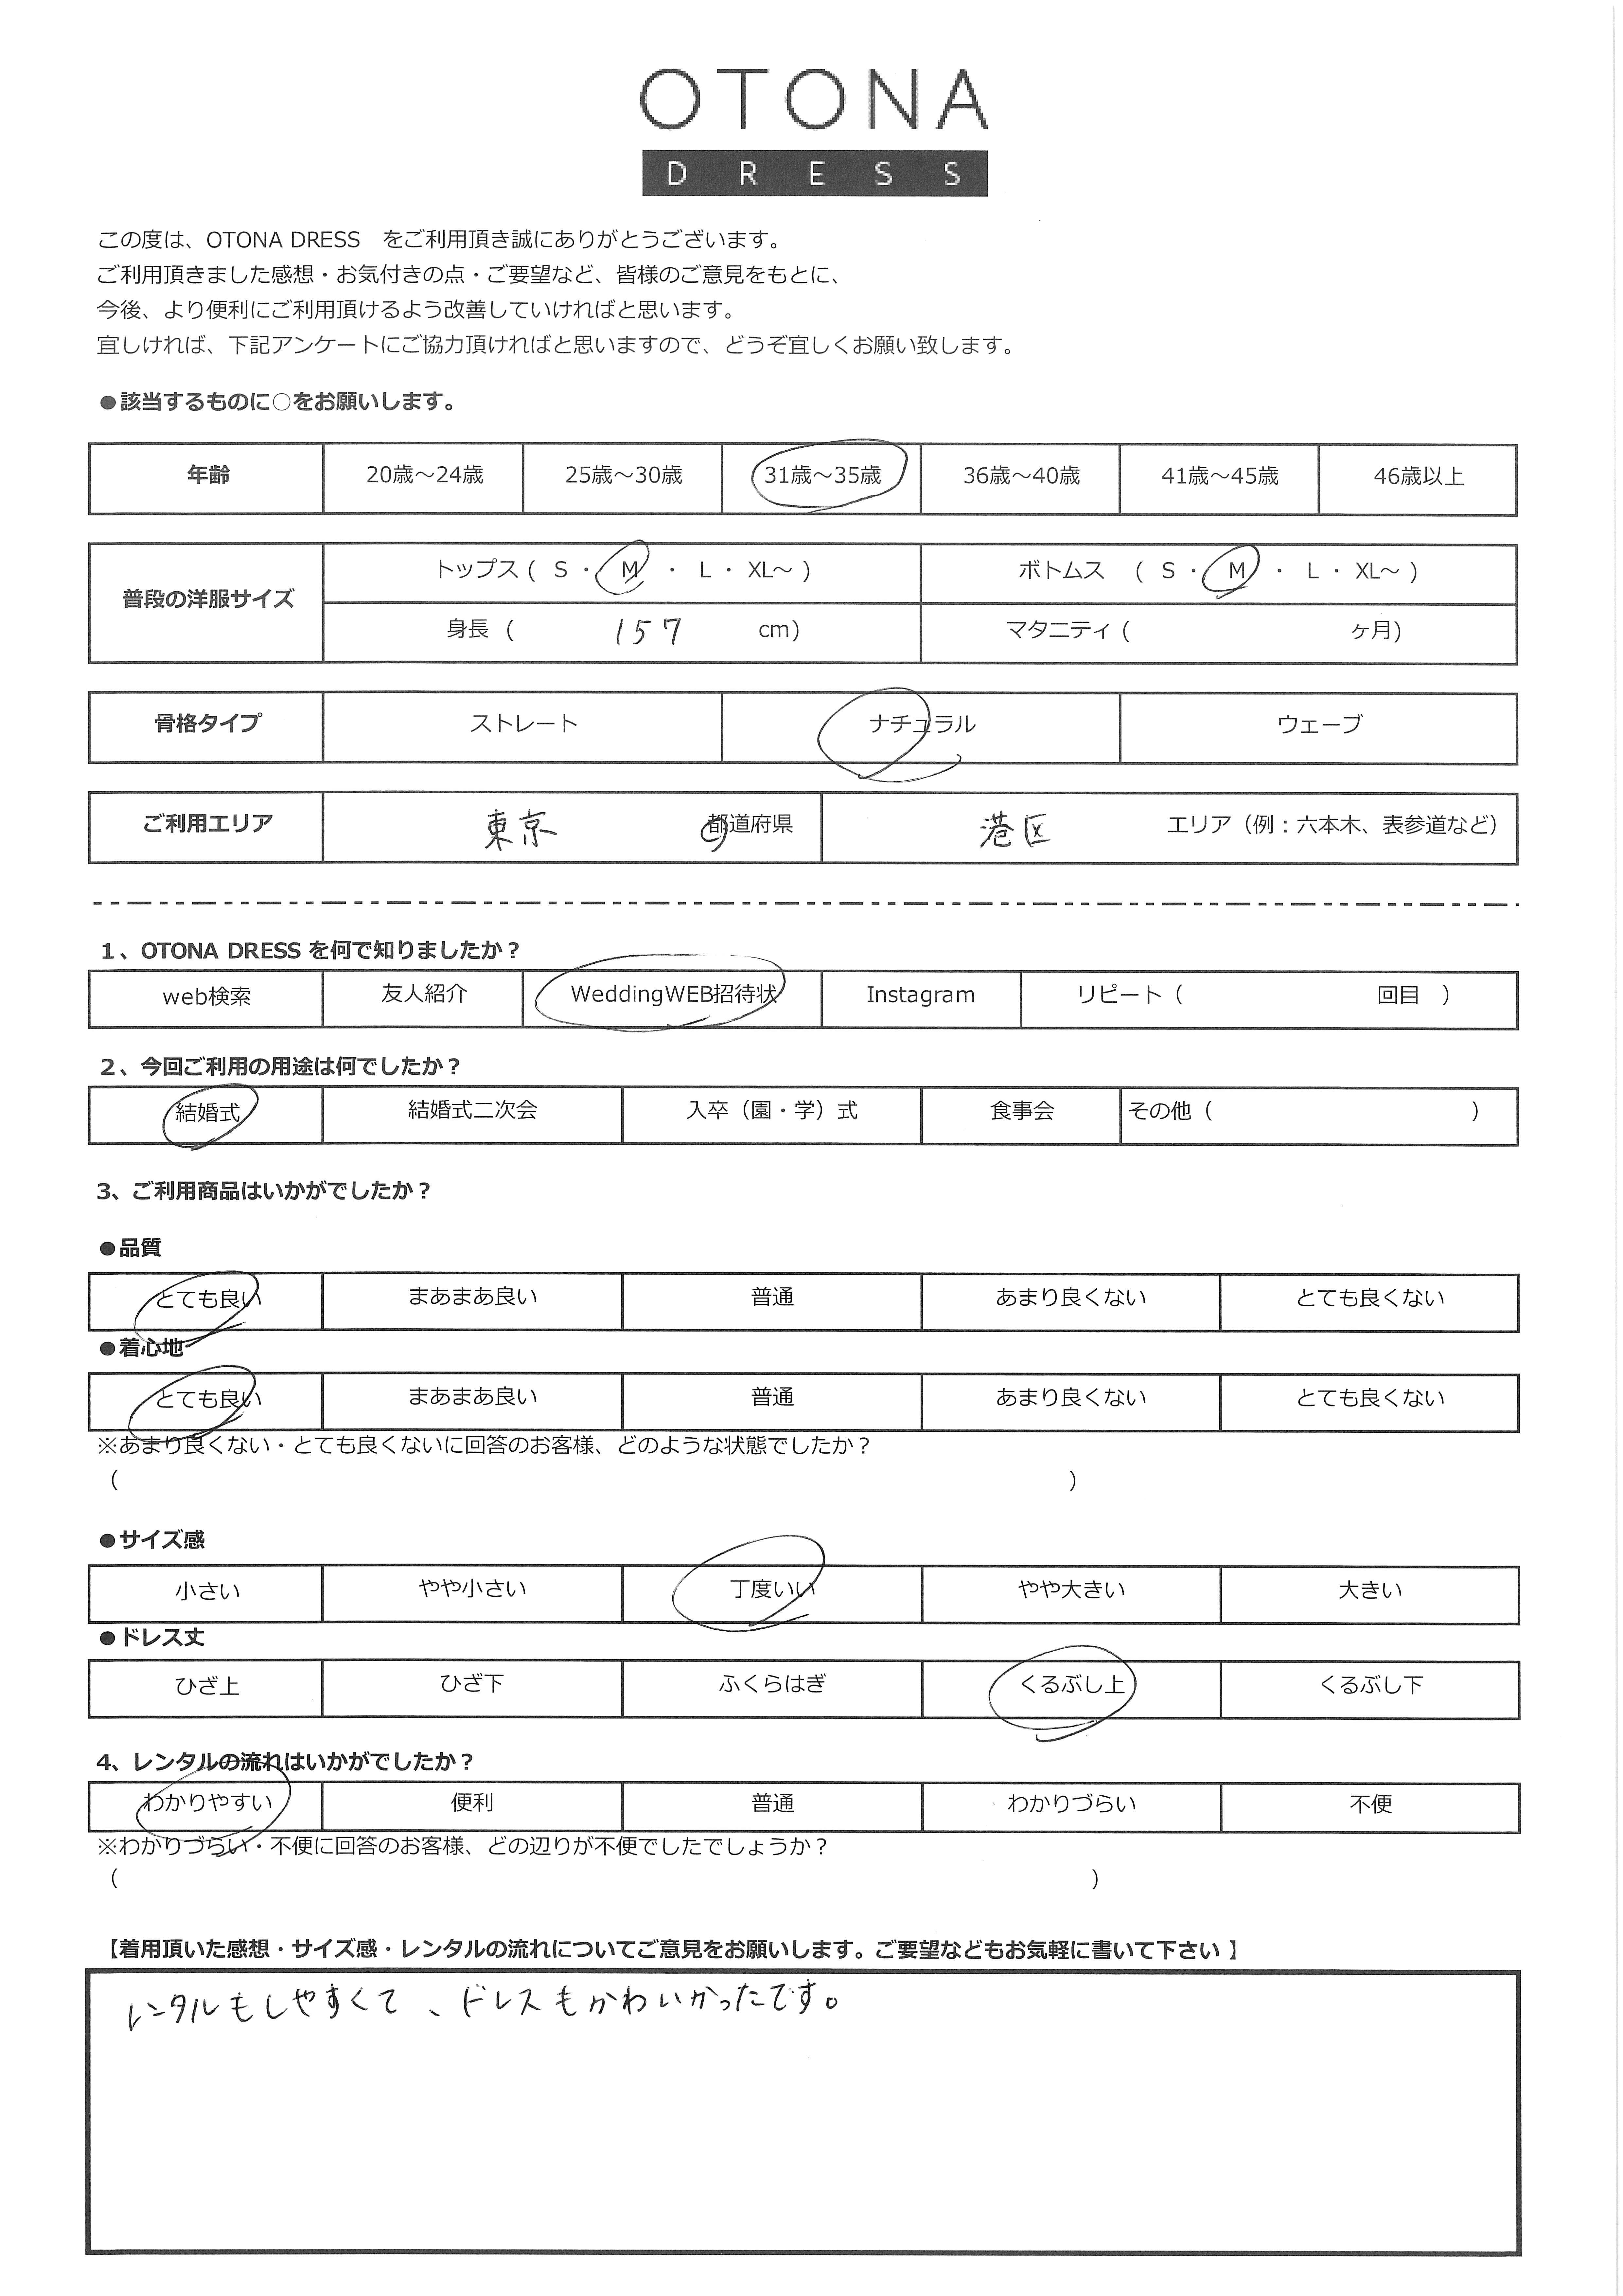 OTONA
DRESS
この度は、OTONA DRESS　をご利用頂き誠にありがとうございます。
ご利用頂きました感想・お気付きの点・ご要望など、皆様のご意見をもとに、
今後、より便利にご利用頂けるよう改善していければと思います。
宜しければ、下記アンケートにご協力頂ければと思いますので、どうぞ宜しくお願い致します。
●該当するものに○をお願いします。
年齢 20歳～24歳 25歳～30歳 31歳～35歳 36歳～40歳 41歳～45歳 46歳以上
普段の洋服サイズ
トップス ( S ・ M ・ L ・ XL～ ) ボトムス ( S ・ M ・ L ・ XL～ )
身長 ( 157 cm) マタニティ ( ヶ月)
骨格タイプ ストレート ナチュラル ウェーブ
ご利用エリア 東京 都道府県 港区 エリア（例：六本木、表参道など）
1、OTONA DRESS を何で知りましたか？
web検索 友人紹介 WeddingWEB招待状 Instagram リピート（ 回目 ）
2、今回ご利用の用途は何でしたか？
結婚式 結婚式二次会 入卒（園・学）式 食事会 その他（ ）
3、ご利用商品はいかがでしたか？
●品質
とても良い まあまあ良い 普通 あまり良くない とても良くない
●着心地
とても良い まあまあ良い 普通 あまり良くない とても良くない
※あまり良くない・とても良くないに回答のお客様、どのような状態でしたか？
（ ）
●サイズ感
小さい やや小さい 丁度いい やや大きい 大きい
●ドレス丈
ひざ上 ひざ下 ふくらはぎ くるぶし上 くるぶし下
4、レンタルの流れはいかがでしたか？
わかりやすい 便利 普通 わかりづらい 不便
※わかりづらい・不便に回答のお客様、どの辺りが不便でしたでしょうか？
（ ）
【着用頂いた感想・サイズ感・レンタルの流れについてご意見をお願いします。ご要望などもお気軽に書いて下さい 】
レンタルもしやすくて、ドレスもかわいかったです。